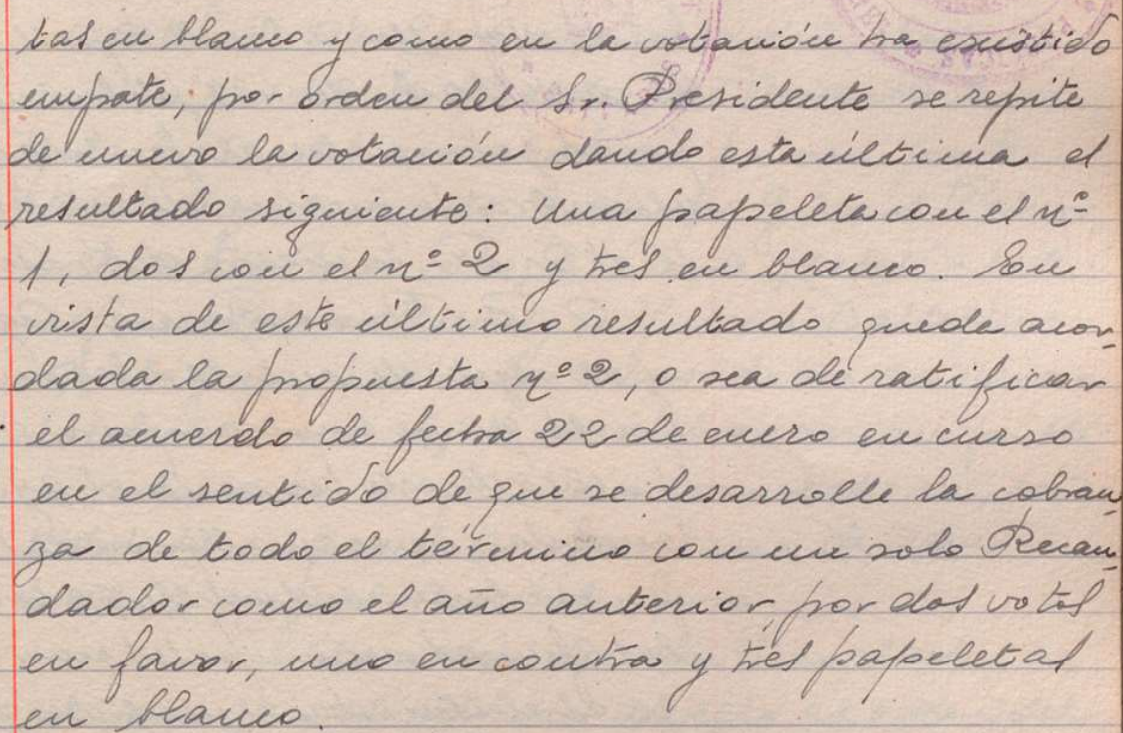 tas en blanco y como en la votación ha existido
empate, por orden del Sr. Presidente se repite
de nuevo la votación dando esta última el
resultado siguiente: Una papeleta con el nº
1, dos con el nº 2 y tres en blanco. En
vista de este último resultado quede acor-
dada la propuesta nº 2, o sea de ratificar
el acuerdo de fecha 22 de enero en curso
en el sentido de que se desarrolle la cobran-
za de todo el término con un solo Recau-
dador como el año anterior, por dos votos
en favor, uno en contra y tres papeletas
en blanco.